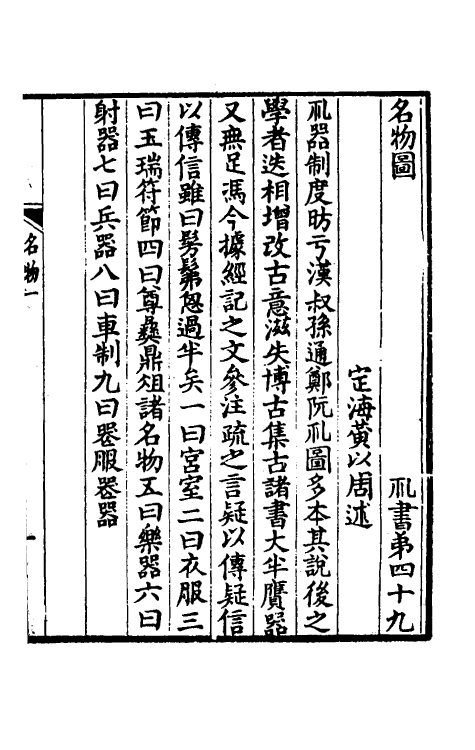 名物圖　禮書弟四十九
定海黃以周述
禮器制度昉亏漢叔孫通鄭阮禮圖多本其說後之
學者迭相增改古意滋失博古集古諸書大半贋器
又無足馮今據經記之文參注疏之言疑以傳疑信
以傳信雖曰髣髴恖過半矣一曰宮室二曰衣服三
曰玉瑞符節四曰尊彝鼎俎諸名物五曰樂器六曰
射器七曰兵器八曰車制九曰喪服喪器
名物一
一